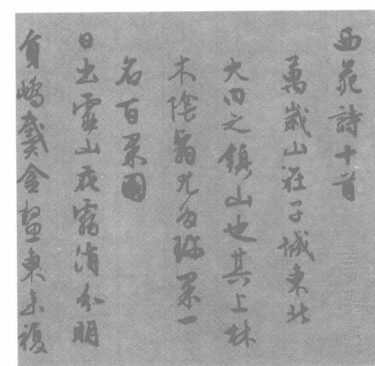 西苑詩十首
萬歲山在子城東北
大內之鎮山也其上林
木陰翳尤多珍果一
名百果園
日出靈山花霧消分明
員嶠戴金鰲東來複